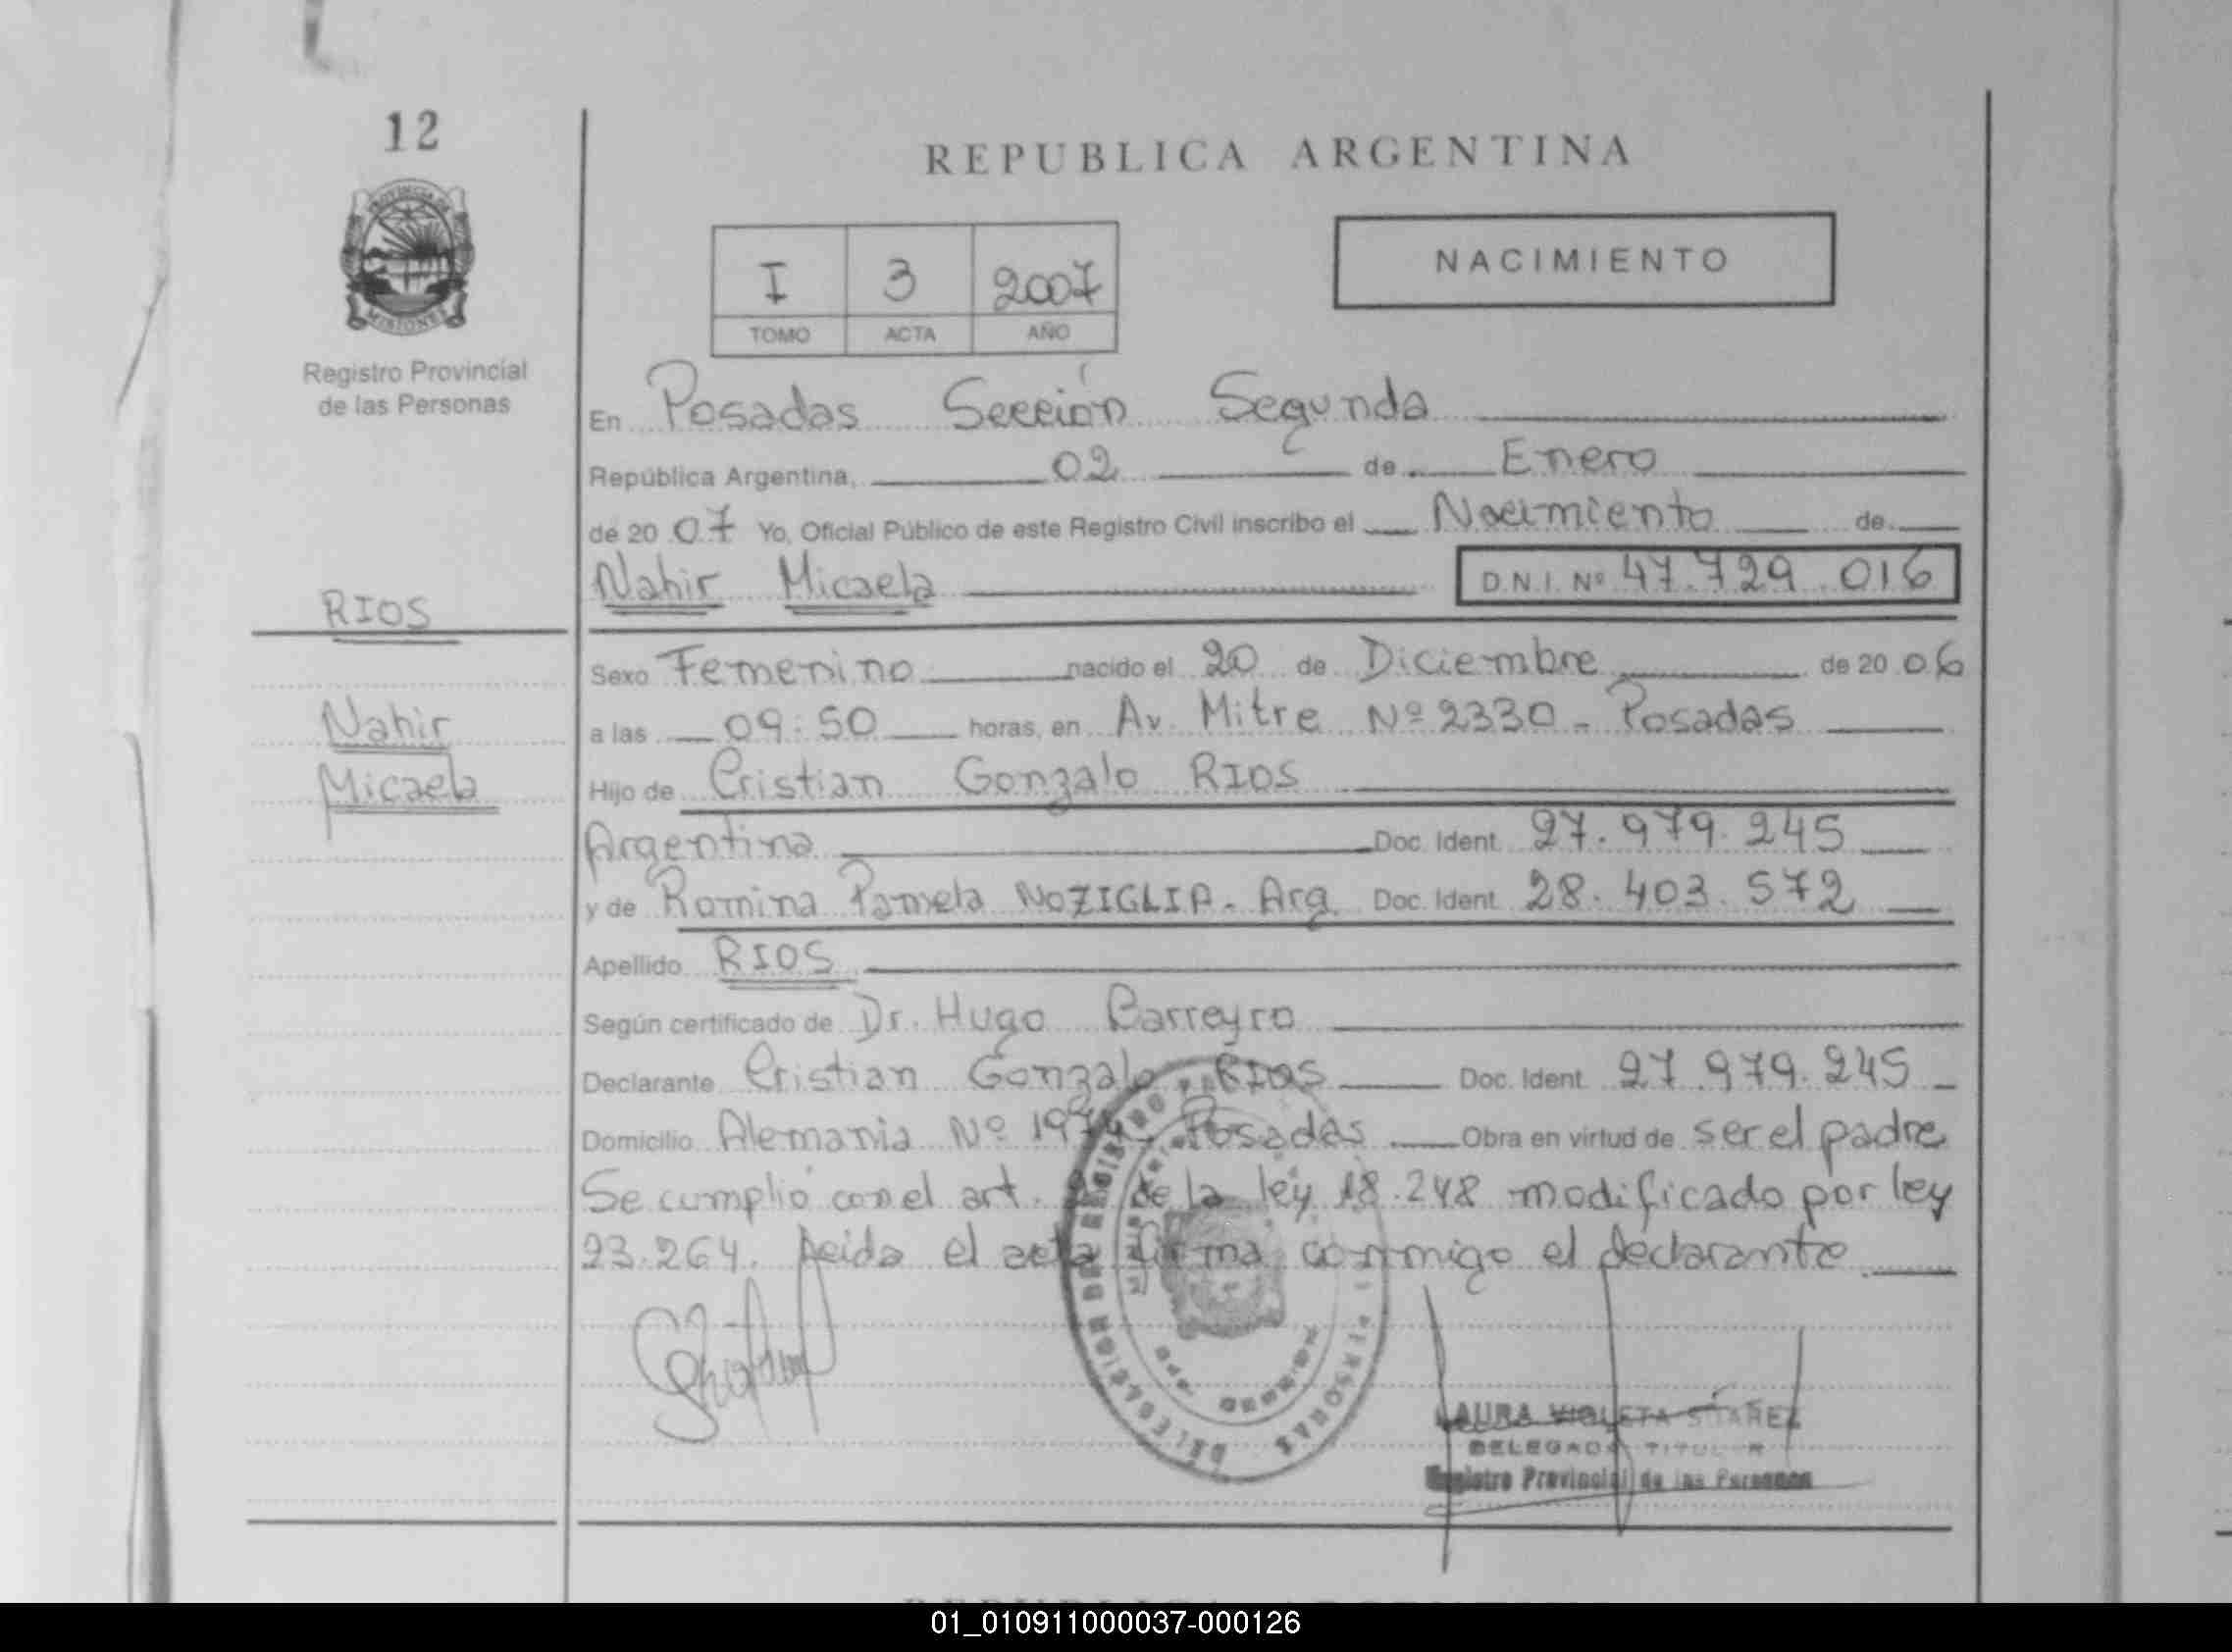 12
REPUBLICA ARGENTINA
PROVINCIA DE
MISIONES
Registro Provincial
de las Personas
I 3 2007
TOMO ACTA AÑO
NACIMIENTO
En Posadas Sección Segunda
República Argentina, 02 de Enero
de 20 07 Yo, Oficial Público de este Registro Civil inscribo el Nacimiento de
Nahir Micaela D.N.I. Nº 47.729.016
RIOS
Nahir
Micaela
Sexo Femenino nacido el 20 de Diciembre de 20 06
a las 09:50 horas, en Av. Mitre Nº 2330 - Posadas
Hijo de Cristian Gonzalo RIOS
Argentina Doc. Ident. 27.979.245
y de Romina Pamela NOZIGLIA - Arg Doc. Ident. 28.403.572
Apellido RIOS
Según certificado de Dr. Hugo Barreyro
Declarante Cristian Gonzalo RIOS Doc. Ident. 27.979.245
Domicilio Alemania Nº Posadas Obra en virtud de ser el padre
Se cumplió con el art. de la ley 18.248 modificado por ley
23.264. Leida el acta firma conmigo el declarante
LAURA VIOLETA SUAREZ
DELEGADA TITULAR
Registro Provincial de las Personas
01_010911000037-000126